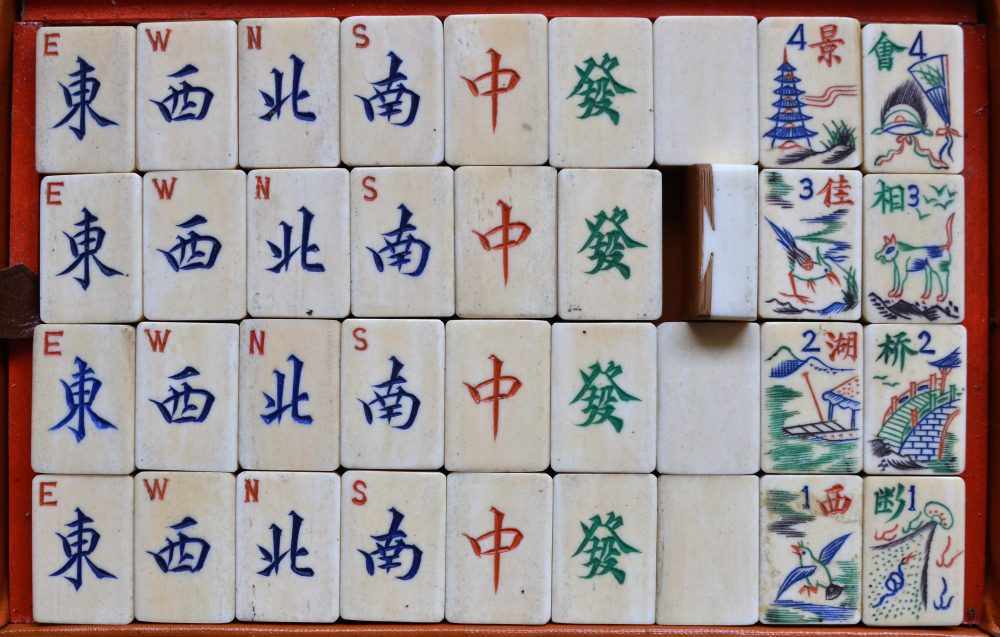 E 東 W 西 N 北 S 南 中 發 4 景 會 4
E 東 W 西 N 北 S 南 中 發 3 佳 相 3
E 東 W 西 N 北 S 南 中 發 2 湖 桥 2
E 東 W 西 N 北 S 南 中 發 1 西 断 1